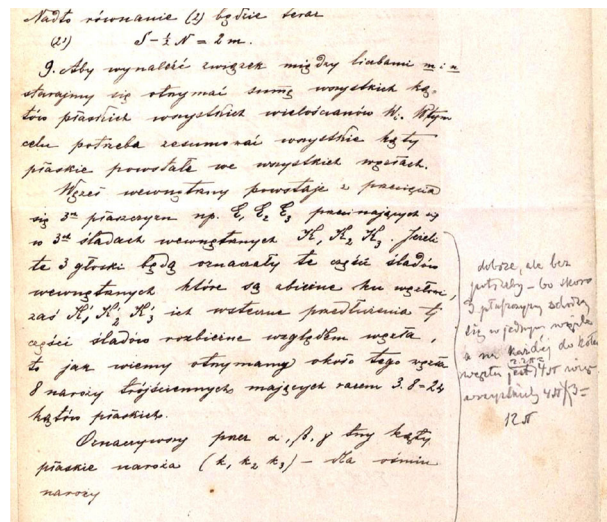 Nadto równanie (2) będzie teraz
(2') S - ½ N = 2 m.
9. Aby wynaleźć związek między liczbami m i n
starajmy się otrzymać sumę wszystkich ką-
tów płaskich wszystkich wielościanów W. W tym
celu potrzeba zesumować wszystkie kąty
płaskie powstałe we wszystkich węzłach.
Węzeł wewnętrzny powstaje z przecięcia
się 3ch płaszczyzn np. E₁ E₂ E₃ przecinających się
w 3ch śladach wewnętrznych K₁ K₂ K₃. Jeżeli
te 3 głoski będą oznaczały te części śladów
wewnętrznych które są zbieżne ku węzłowi,
zaś K'₁ K'₂ K'₃ ich wsteczne przedłużenia t.j.
części śladów rozbieżne względem węzła,
to jak wiemy otrzymamy około tego węzła
8 naroży trójściennych mających razem 3.8=24
kątów płaskich.
Oznaczywszy przez α, β, γ trzy kąty
płaskie naroża (k₁ k₂ k₃) – dla ośmiu
naroży
dobrze, ale bez
potrzeby – bo skoro
3 płaszczyzny schodzą
się w jednym węźle
a na każdej do koła
węzła jest 4π więc
wszystkich 4π×3=
12π